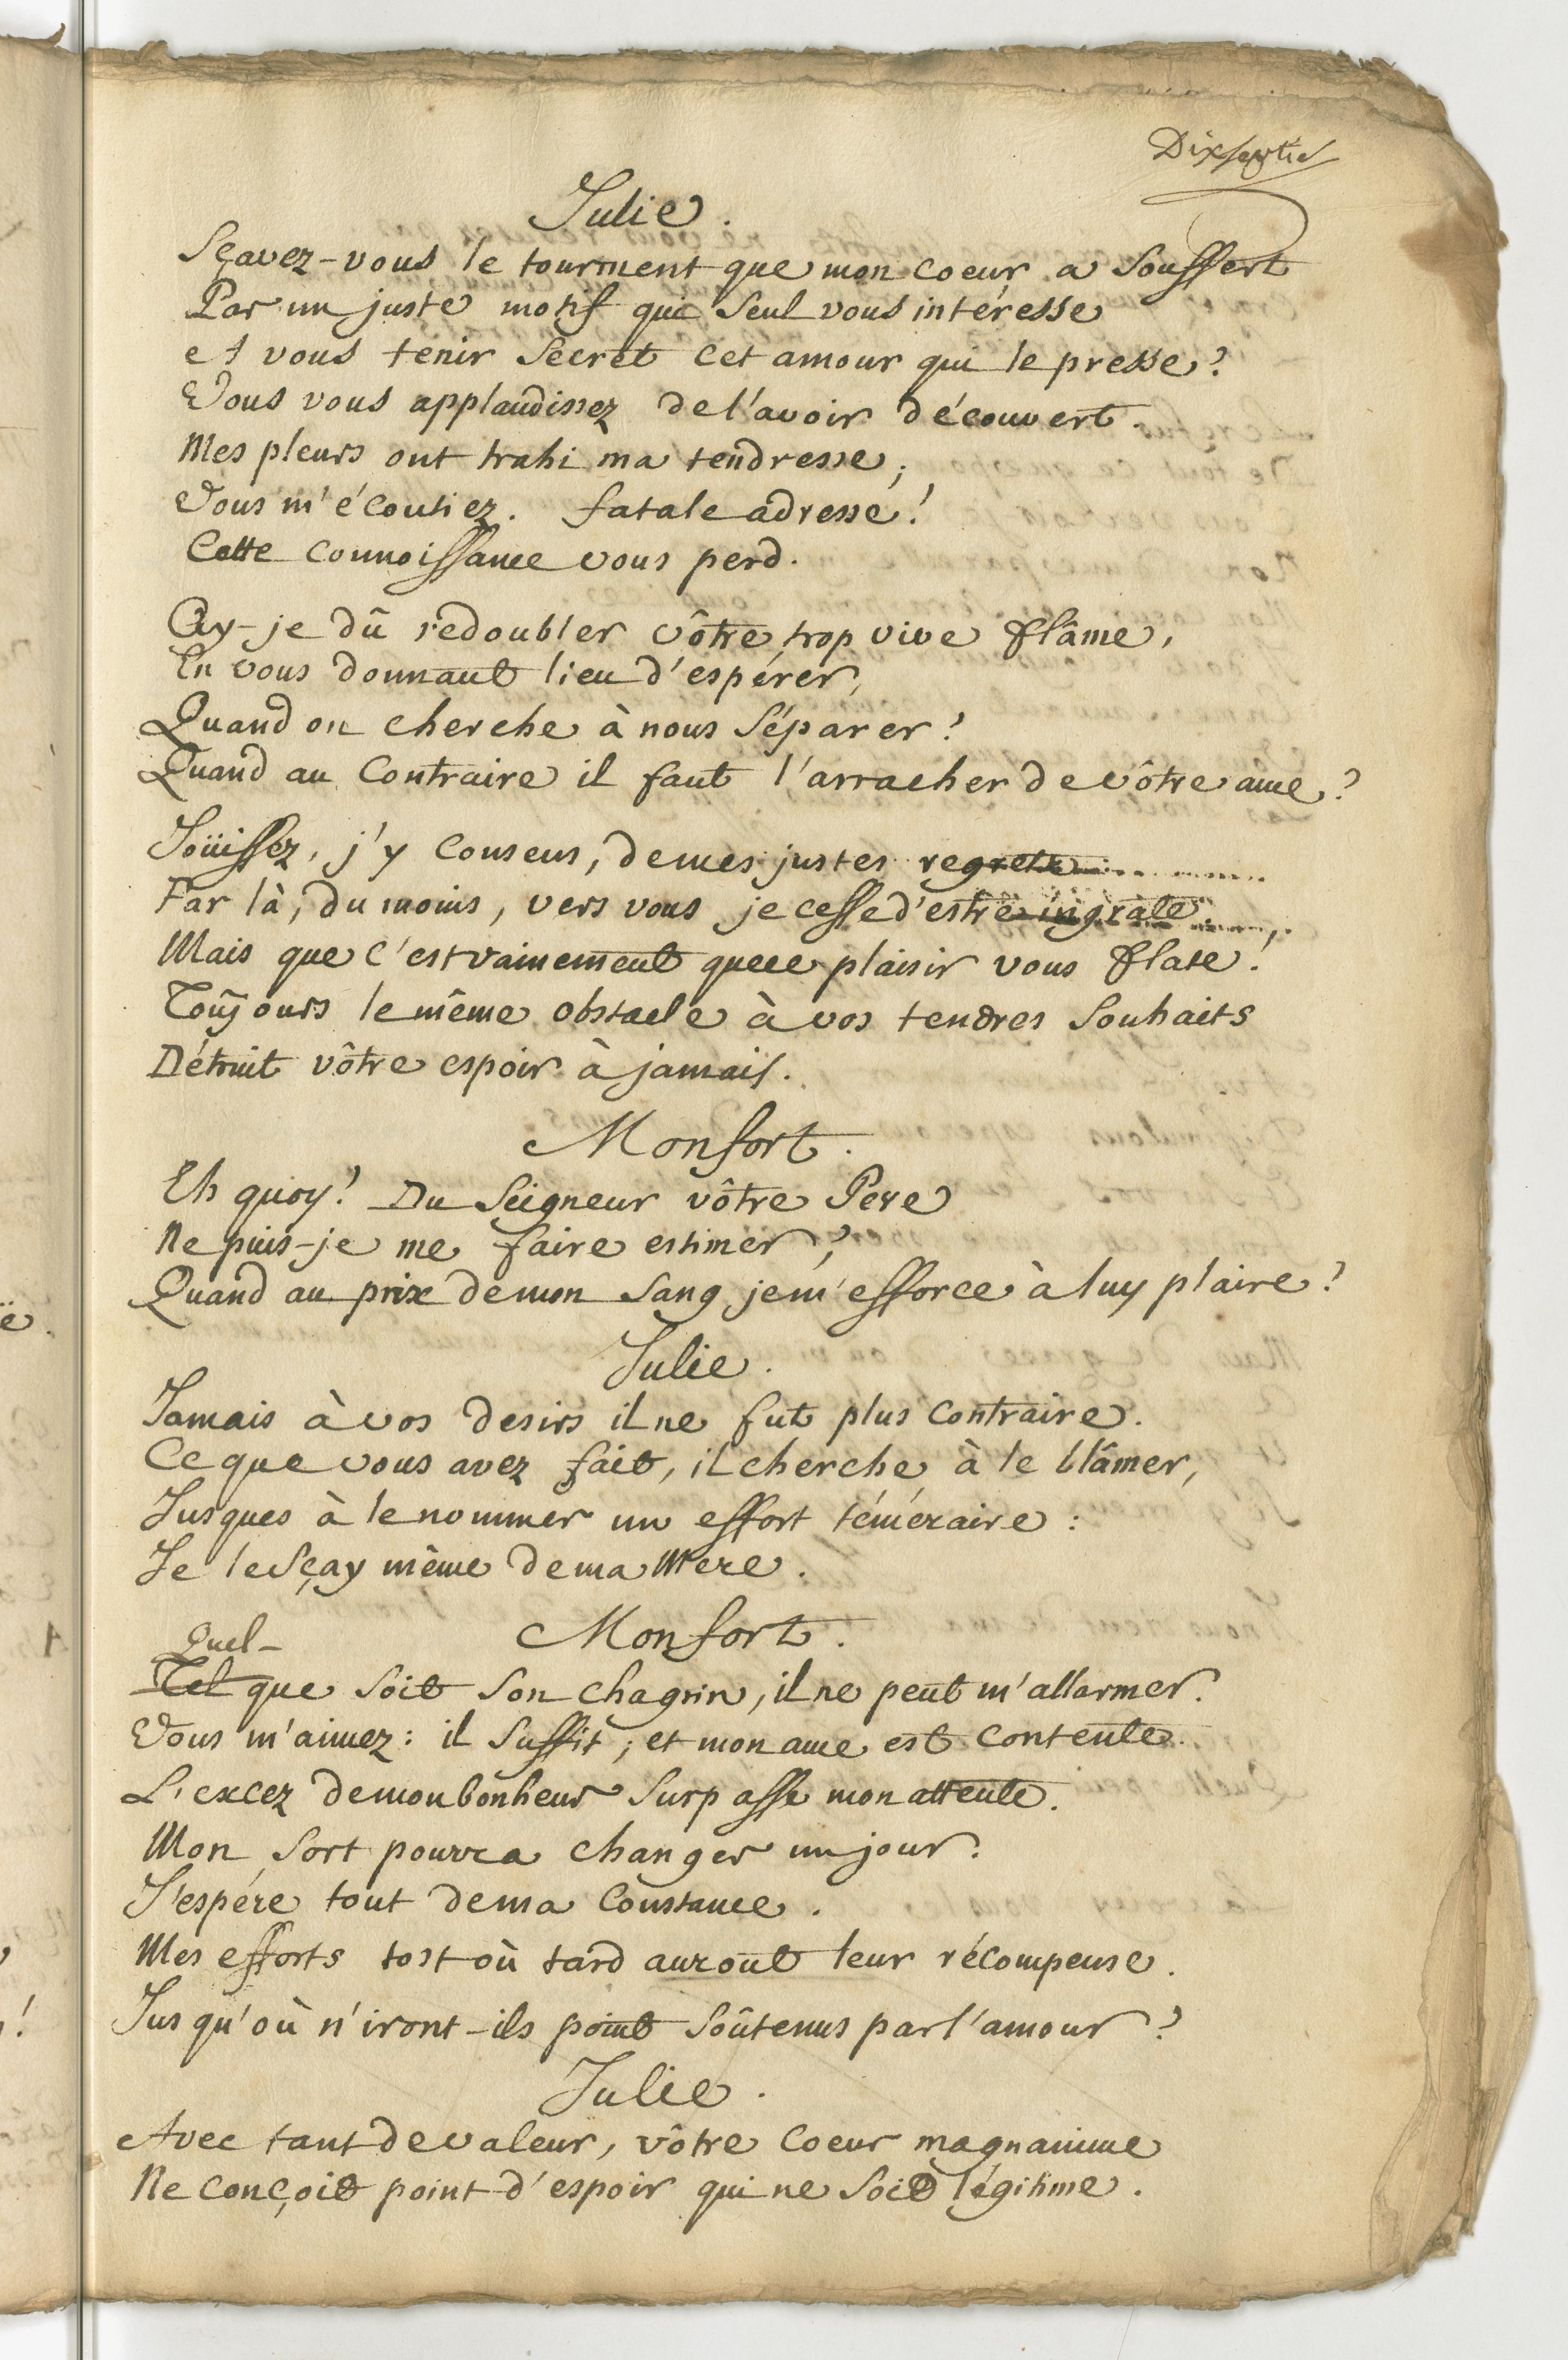 Dixseptie
Julie.
Sçavez-vous le tourment que mon coeur a souffert
Par un juste motif qui seul vous intéresse
et vous tenir secret cet amour qui le presse?
Vous vous applaudissez de l'avoir découvert.
Mes pleurs ont trahi ma tendresse;
Vous m'écoutiez. fatale adresse!
Cette connoissance vous perd.
Ay-je dû redoubler vôtre trop vive flâme,
En vous donnant lieu d'espérer,
Quand on cherche à nous séparer?
Quand au contraire il faut l'arracher de vôtre ame?
Joüissez, j'y consens, de mes justes regrets
Par là, du moins, vers vous je cesse d'estre ingrate.
Mais que c'est vainement que ce plaisir vous flate!
Toûjours le même obstacle à vos tendres souhaits
Détruit vôtre espoir à jamais.
Monfort.
Eh quoy! Du Seigneur vôtre Pere
Ne puis-je me faire estimer,
Quand au prix de mon sang je m'efforce à luy plaire?
Julie.
Jamais à vos desirs il ne fut plus contraire.
Ce que vous avez fait, il cherche à le blâmer,
Jusques à le nommer un effort téméraire:
Je le sçay même de ma Mere.
Monfort.
Quel-
Tel que soit son chagrin, il ne peut m'allarmer.
Vous m'aimez: il suffit; et mon ame est contente.
L'excez de mon bonheur surpasse mon attente.
Mon sort pourra changer un jour.
J'espére tout de ma constance.
Mes efforts tost où tard auront leur récompense.
Jusqu'où n'iront-ils point soûtenus par l'amour?
Julie.
Avec tant de valeur, vôtre coeur magnanime
Ne conçoit point d'espoir qui ne soit légitime.